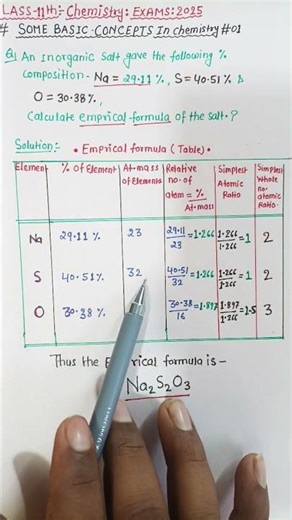 LASS-11th:- Chemistry: EXAMS:2025
# SOME BASIC-CONCEPTS In chemistry #01
Q1 An Inorganic Salt gave the following %
composition- Na = 29.11 %, S = 40.51 % &
O = 30.38 %,
Calculate emprical-formula of the salt.?
Solution:- • Emprical formula (Table) •
Element % of Element At. mass of Elements Relative no. of atom = % / At. mass Simplest Atomic Ratio Simplest Whole no. atomic Ratio.
Na 29.11 % 23 29.11/23 = 1.266 1.266/1.266 = 1 2
S 40.51 % 32 40.51/32 = 1.266 1.266/1.266 = 1 2
O 30.38 % 30.38/16 = 1.897 1.897/1.266 = 1.5 3
Thus the rical formula is -
Na2S2O3